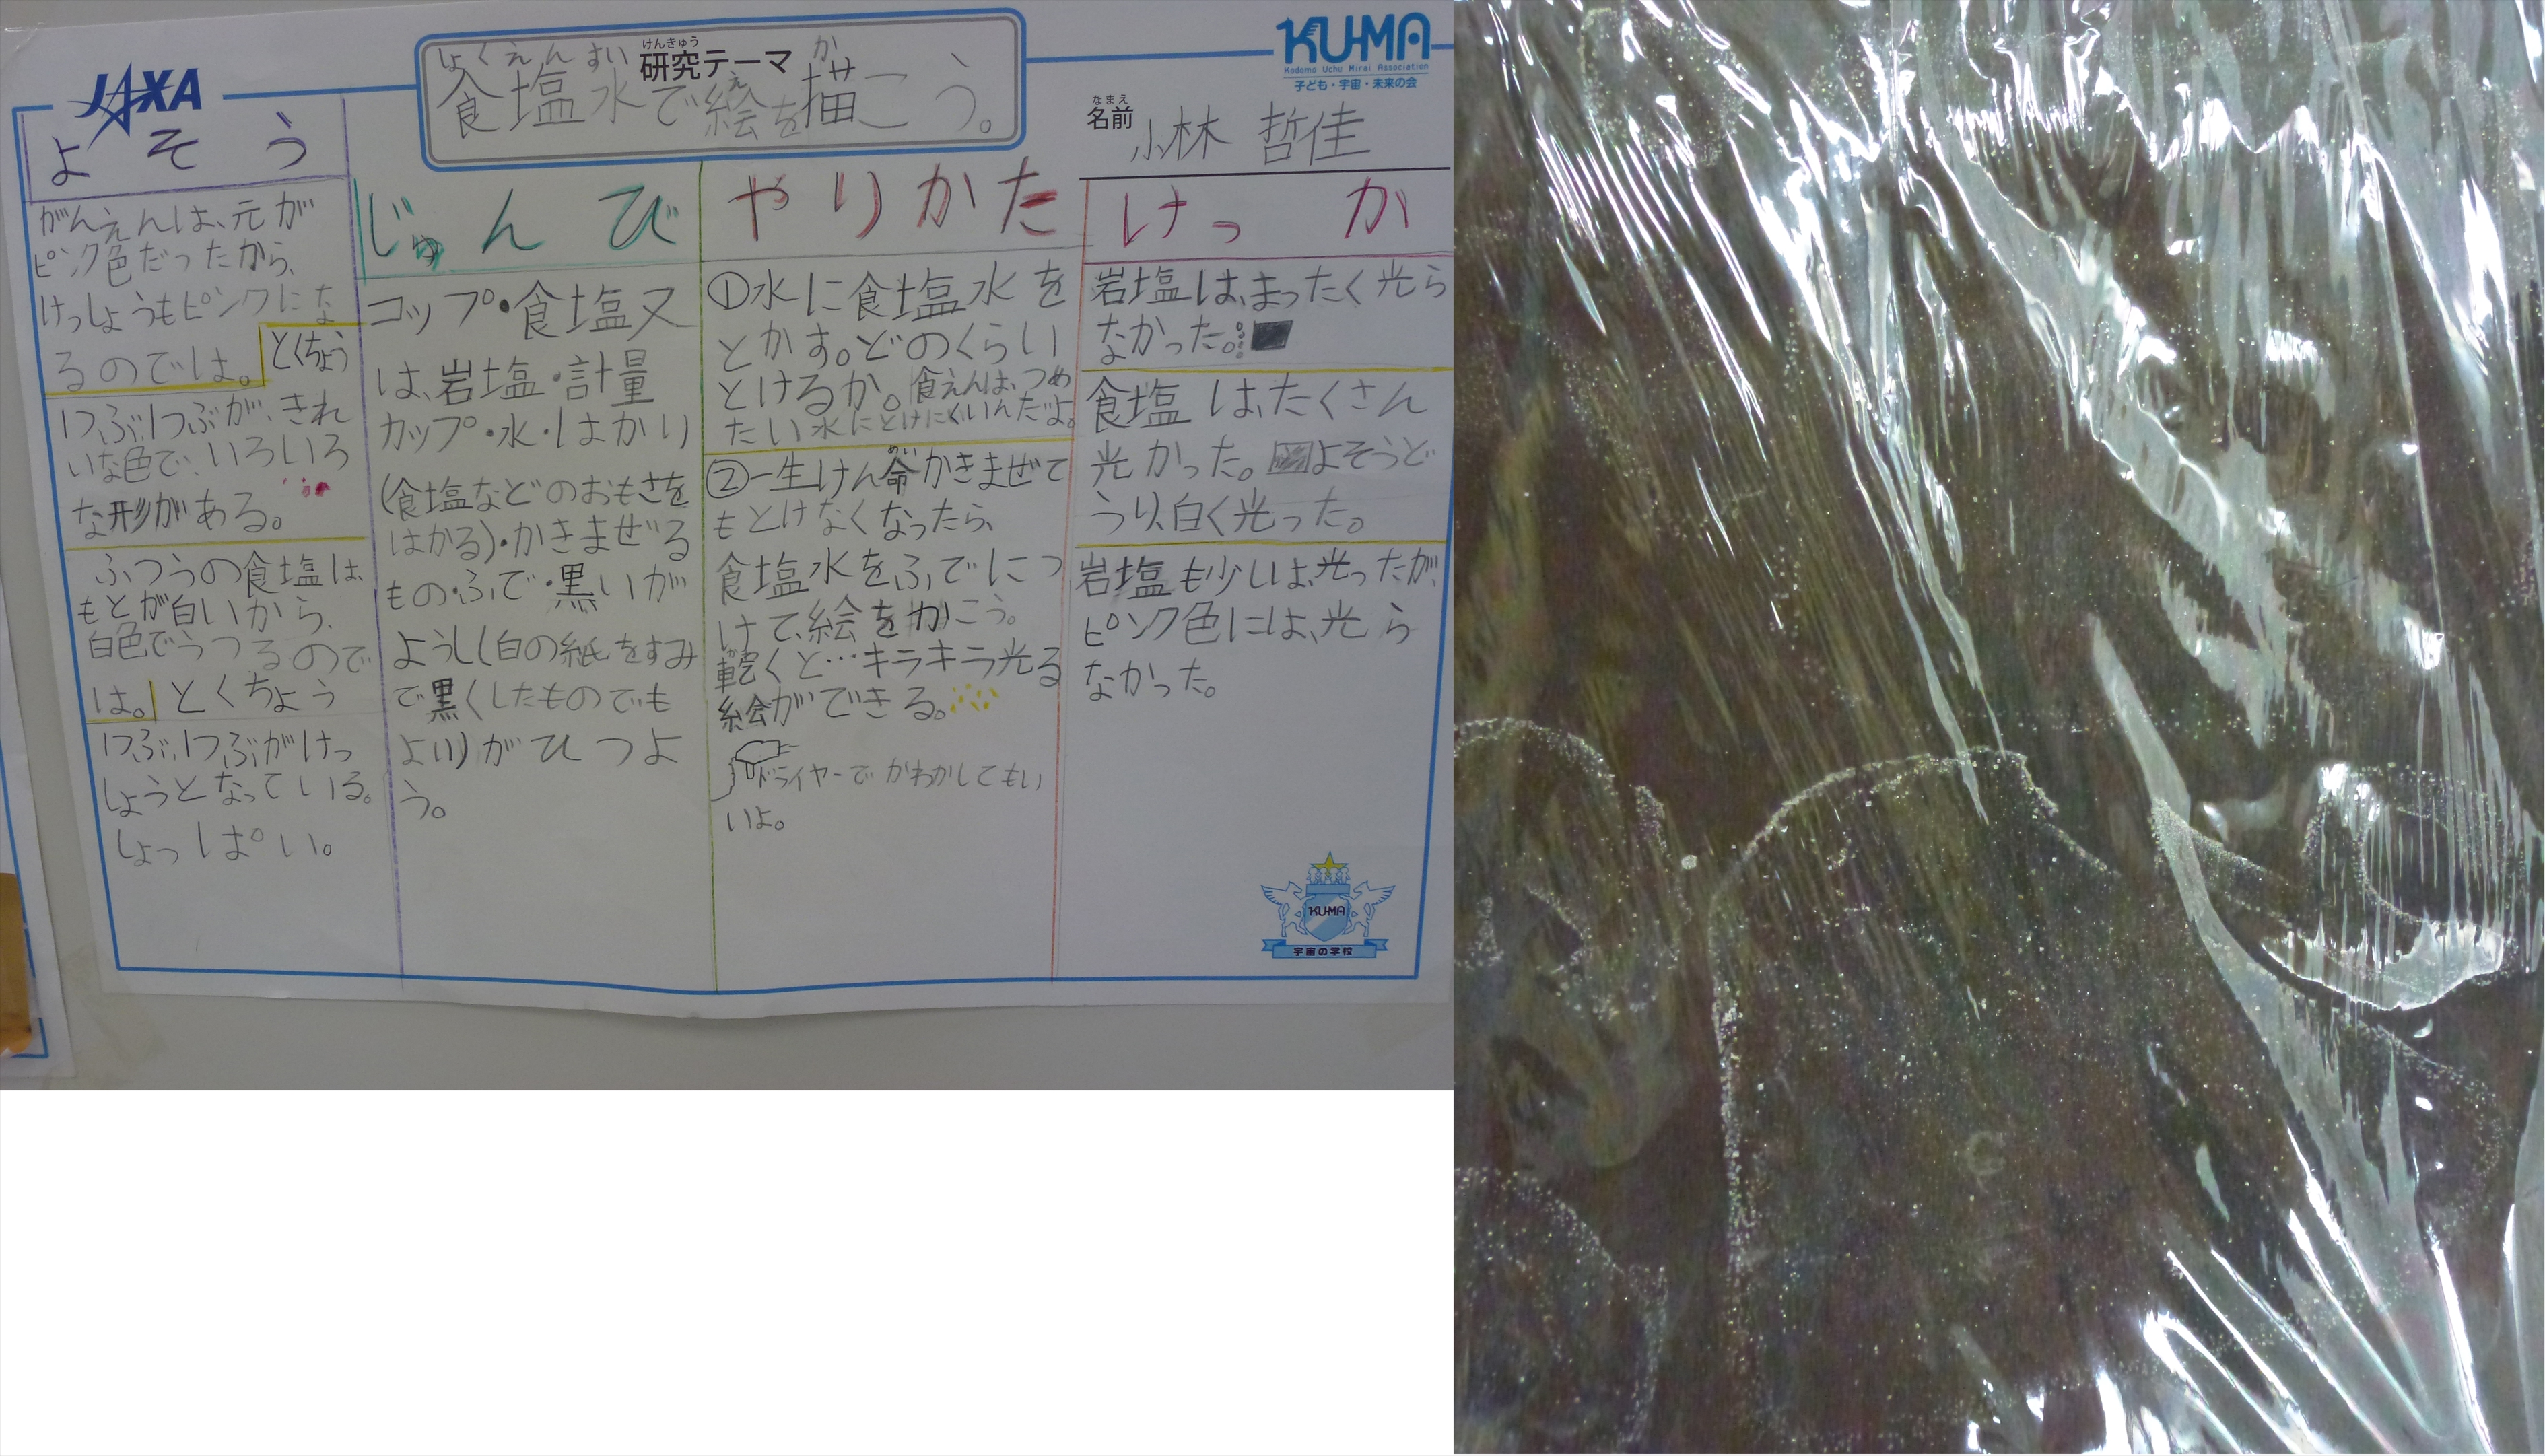 JAXA
けんきゅう
研究テーマ
しょくえんすい え か
食塩水で絵を描こう。
KU-MA
Kodomo Uchu Mirai Association
子ども・宇宙・未来の会
なまえ
名前
小林 哲佳
よそう
がんえんは、元が
ピンク色だったから、
けっしょうもピンクにな
るのでは。
とくちょう
1つぶ1つぶが、きれ
いな色で、いろいろ
な形がある。
ふつうの食塩は、
もとが白いから、
白色でうつるので
は。
とくちょう
1つぶ、1つぶがけっ
しょうとなっている。
しょっぱい。
じゅんび
コップ・食塩又
は、岩塩・計量
カップ・水・はかり
(食塩などのおもさを
はかる)・かきまぜる
もの・ふで・黒いが
ようし(白の紙をすみ
で黒くしたものでも
よい)がひつよ
う。
やりかた
①水に食塩水を
とかす。どのくらい
とけるか。食えんは、つめ
たい水にとけにくいんだよ。
めい
②一生けん命かきまぜて
もとけなくなったら、
食塩水をふでにつ
けて、絵をかこう。
か
乾くと…キラキラ光る
絵ができる。
ドライヤーでかわかしてもい
いよ。
けっか
岩塩は、まったく光ら
なかった。
食塩は、たくさん
光かった。よそうど
うり、白く光った。
岩塩も少しは、光ったが、
ピンク色には、光ら
なかった。
KU-MA
宇宙の学校